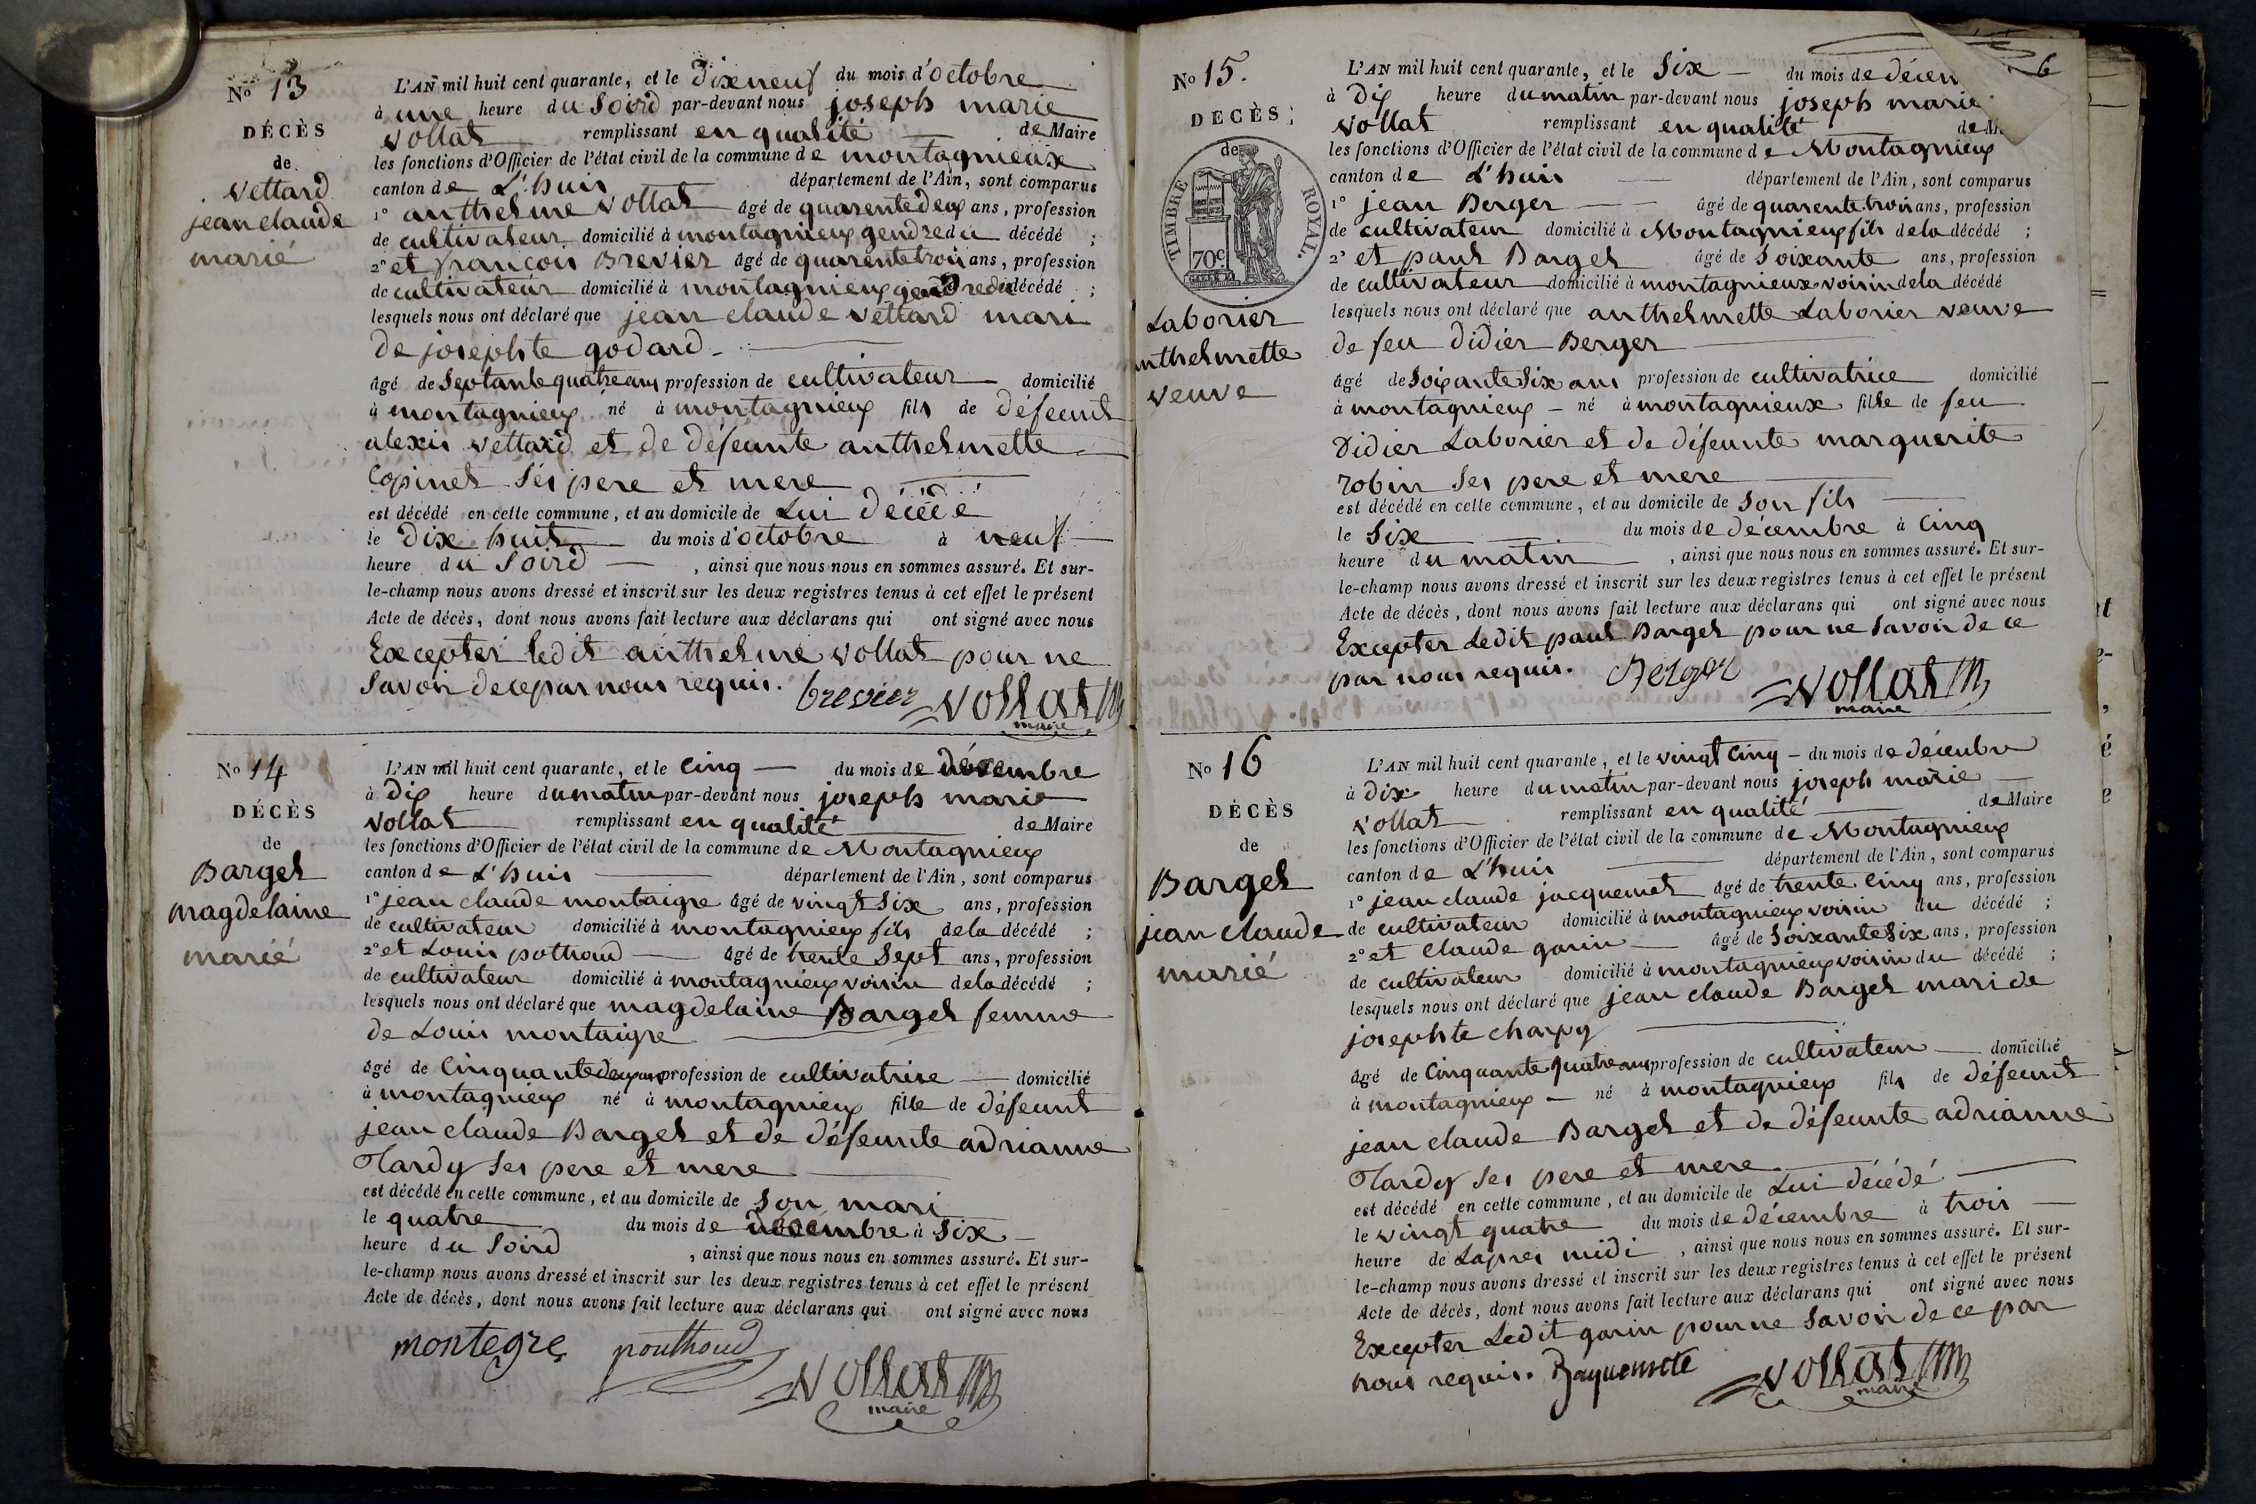 No 13
DÉCÈS
de
Vettard
jean claude
marié
L'AN mil huit cent quarante, et le Dixneuf du mois d'octobre
à une heure du Soird par-devant nous joseph marie
Vollat remplissant en qualité de Maire
les fonctions d'Officier de l'état civil de la commune de montagnieux
canton de L'huis département de l'Ain, sont comparus
1° anthelme Vollat âgé de quarente Deux ans, profession
de cultivateur domicilié à montagnieux gendre du décédé ;
2° et françois Brevier âgé de quarente trois ans, profession
de cultivateur domicilié à montagnieux gendre du décédé ;
lesquels nous ont déclaré que jean claude vettard mari
de josephte godard
âgé de Septante quatre ans profession de cultivateur domicilié
à montagnieux né à montagnieux fils de Défeunt
alexis vettard et de Défeunte anthelmette
Copinet Ses pere et mere
est décédé en cette commune, et au domicile de Lui décédé
le Dix huit du mois d'octobre à neuf
heure du Soird , ainsi que nous nous en sommes assuré. Et sur-
le-champ nous avons dressé et inscrit sur les deux registres tenus à cet effet le présent
Acte de décès, dont nous avons fait lecture aux déclarans qui ont signé avec nous
Excepter ledit anthelme vollat pour ne
Savoir de ce par nous requis. brevier Vollat
maire
No 14
DÉCÈS
de
Barget
magdelaine
marié
L'AN mil huit cent quarante, et le Cinq du mois de décembre
à Dix heure du matin par-devant nous joseph marie
Vollat remplissant en qualité de Maire
les fonctions d'Officier de l'état civil de la commune de Montagnieux
canton de L'huis département de l'Ain, sont comparus
1° jean claude montaigre âgé de vingt Six ans, profession
de cultivateur domicilié à montagnieux fils de la décédé ;
2° et Louis pothoud âgé de trente Sept ans, profession
de cultivateur domicilié à montagnieux voisin de la décédé ;
lesquels nous ont déclaré que magdelaine Barget femme
de Louis montaigre
âgé de Cinquante deux ans profession de cultivatrise domicilié
à montagnieux né à montagnieux fille de défeunt
jean claude Barget et de défeunte adrianne
Tardy Ses pere et mere
est décédé en cette commune, et au domicile de Son mari
le quatre du mois de décembre à Six
heure du Soird , ainsi que nous nous en sommes assuré. Et sur-
le-champ nous avons dressé et inscrit sur les deux registres tenus à cet effet le présent
Acte de décès, dont nous avons fait lecture aux déclarans qui ont signé avec nous
montegre pouthoud Vollat
maire
6
No 15.
DÉCÈS
de
TIMBRE ROYAL.
70c.
Laborier
anthelmette
veuve
L'AN mil huit cent quarante, et le Six du mois de décem
à Dix heure du matin par-devant nous joseph marie
Vollat remplissant en qualité de M
les fonctions d'Officier de l'état civil de la commune de Montagnieux
canton de L'huis département de l'Ain, sont comparus
1° jean Berger âgé de quarente trois ans, profession
de cultivateur domicilié à Montagnieux fils de la décédé ;
2° et paul Barget âgé de Soixante ans, profession
de cultivateur domicilié à montagnieux voisin de la décédé
lesquels nous ont déclaré que anthelmette Laborier veuve
de feu Didier Berger
âgé de Soixante Six ans profession de cultivatrice domicilié
à montagnieux né à montagnieux fille de feu
Didier Laborier et de défeunte marguerite
robin Ses pere et mere
est décédé en cette commune, et au domicile de Son fils
le Six du mois de décembre à Cinq
heure du matin , ainsi que nous nous en sommes assuré. Et sur-
le-champ nous avons dressé et inscrit sur les deux registres tenus à cet effet le présent
Acte de décès, dont nous avons fait lecture aux déclarans qui ont signé avec nous
Excepter Ledit paul Barget pour ne Savoir de ce
par nous requis. Berger Vollat
maire
No 16
DÉCÈS
de
Barget
jean claude
marié
L'AN mil huit cent quarante, et le vingt Cinq du mois de décembre
à Dix heure du matin par-devant nous joseph marie
Vollat remplissant en qualité de Maire
les fonctions d'Officier de l'état civil de la commune de Montagnieux
canton de L'huis département de l'Ain, sont comparus
1° jean claude jacquemet âgé de trente Cinq ans, profession
de cultivateur domicilié à montagnieux voisin du décédé ;
2° et claude gorin âgé de Soixante Six ans, profession
de cultivateur domicilié à montagnieux voisin du décédé ;
lesquels nous ont déclaré que jean claude Barget mari de
josephte charpy
âgé de Cinquante quatre ans profession de cultivateur domicilié
à montagnieux né à montagnieux fils de défeunt
jean claude Barget et de défeunte adrianne
Tardy Ses pere et mere
est décédé en cette commune, et au domicile de Lui décédé
le vingt quatre du mois de décembre à trois
heure de Lapres midi , ainsi que nous nous en sommes assuré. Et sur-
le-champ nous avons dressé et inscrit sur les deux registres tenus à cet effet le présent
Acte de décès, dont nous avons fait lecture aux déclarans qui ont signé avec nous
Excepter Ledit gorin pour ne Savoir de ce par
nous requis. Jaquemete Vollat
maire